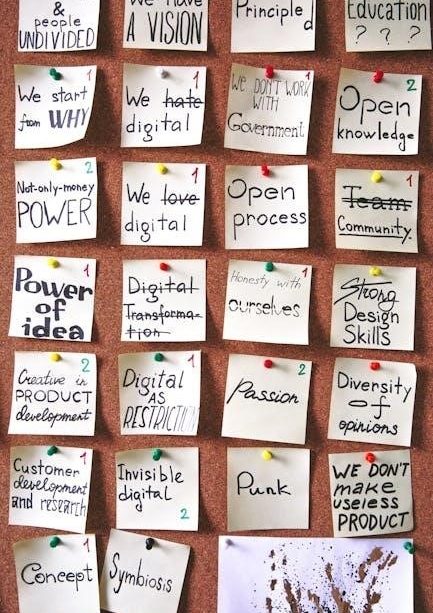 &
people
UNDIVIDED
We have
A VISION
Principled
Education
? ? ?
1
We start
from WHY
1
We hate
digital
1
WE DON'T WORK
WITH
Government
2
Open
knowledge
2
Not-only-money
POWER
1
We love
digital
Open
process
1
Team
Community.
1
Power
of
idea
Digital
Transforma-
tion
1
Honesty with
ourselves
Strong
Design
Skills
2
Creative in
PRODUCT
development
1
Digital
AS
RESTRICTION
2
Passion
Diversity
of
opinions
1
Customer
development
and research
Invisible
digital
2
Punk
WE DON'T
make
useless
PRODUCT
1
Concept
Symbiosis